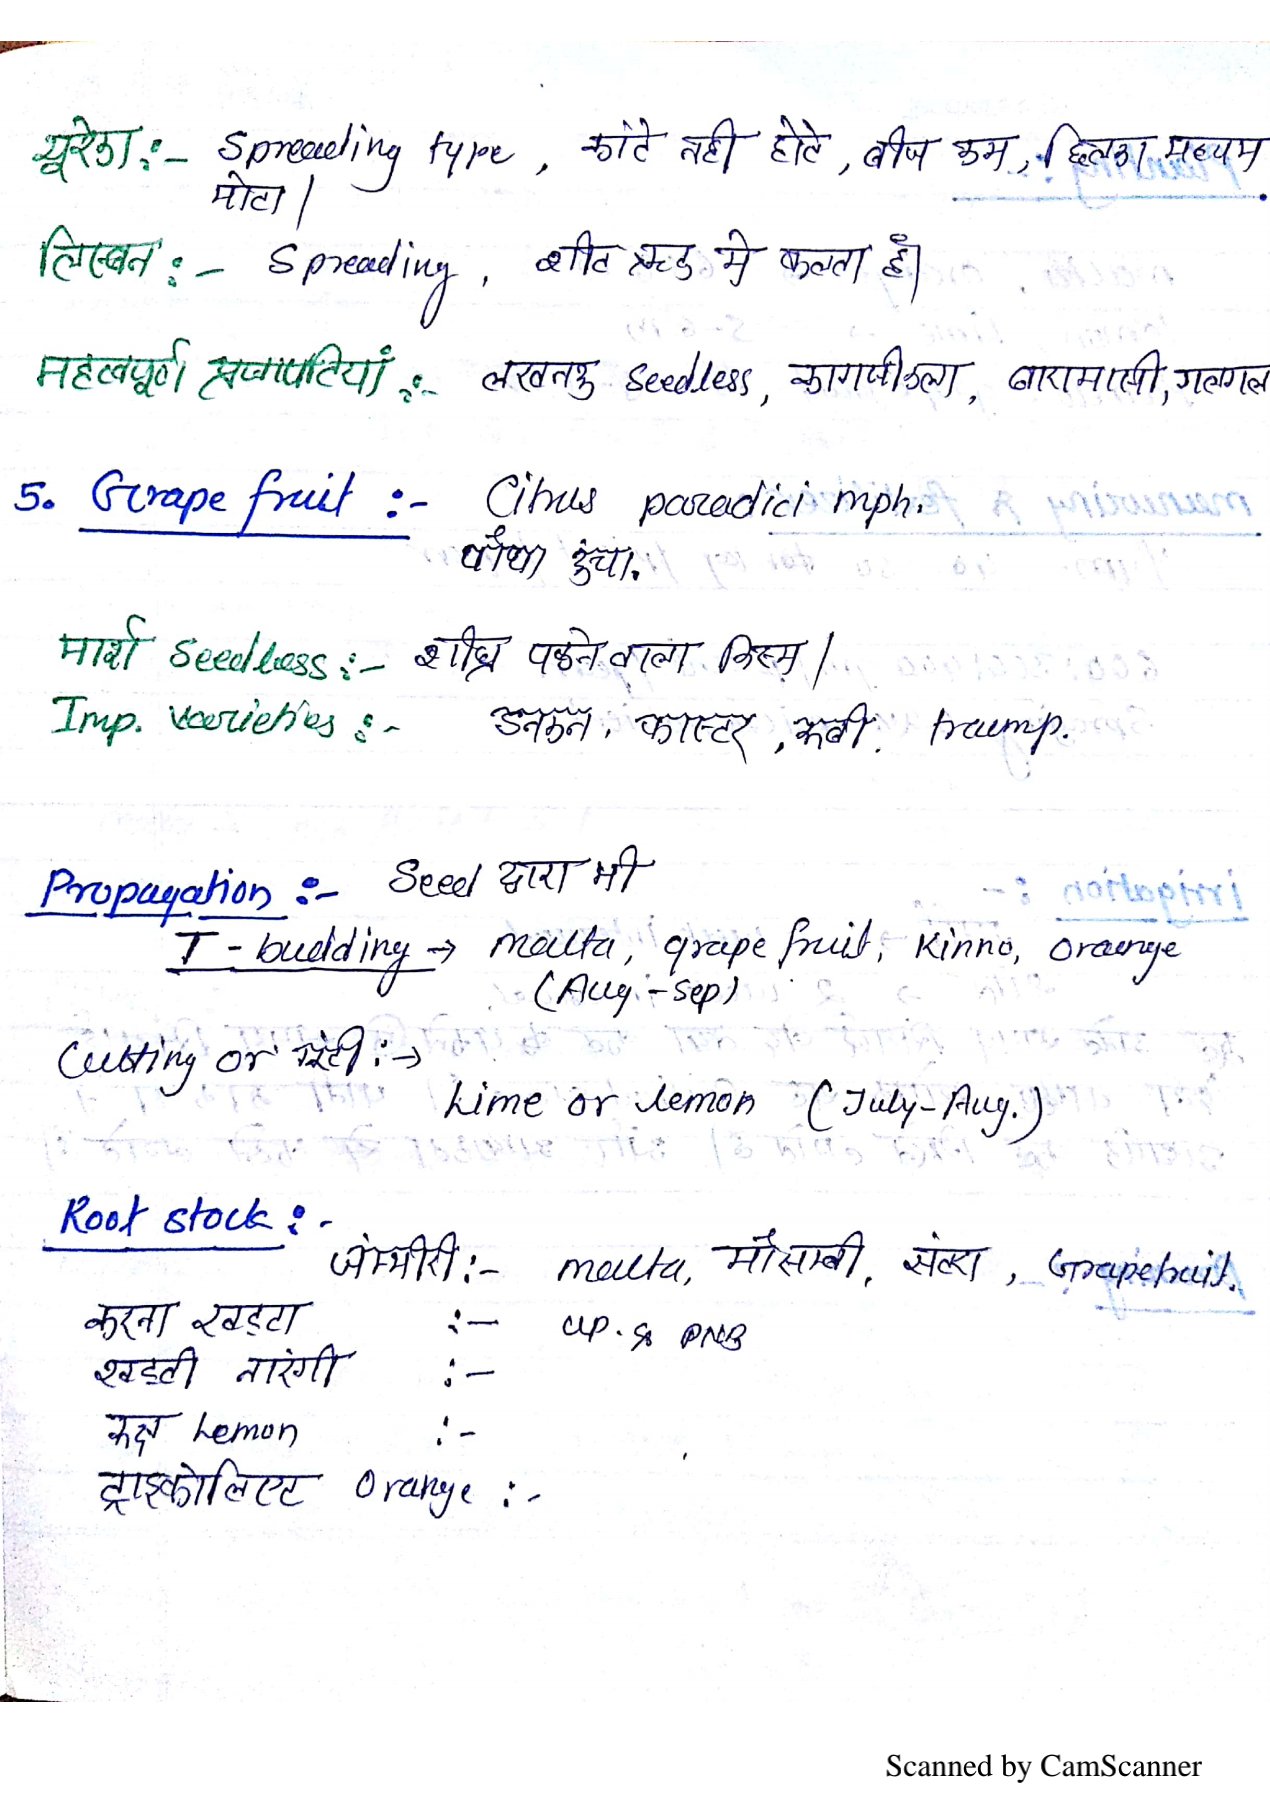 यूरेका :- Spreading type, कांटे नही होते, बीज कम, छिलका मध्यम
मोटा।
लिस्बन :- Spreading, शीत ऋतु मे फलता है।
महत्वपूर्ण प्रजापतियां :- लखनऊ Seedless, कागजीकला, बारामासी, गलगल
5. Grape fruit :- Citrus paradici mph.
पौधा ऊंचा.
मार्श Seedless :- शीघ्र पकने वाला किस्म।
Imp. varieties :- डनकन, फास्टर, रूबी. trump.
Propagation :- Seed द्वारा भी
T-budding → malta, grape fruit, Kinno, orange
(Aug-Sep)
Cutting or :→
Lime or Lemon (July-Aug.)
Root stock :-
जम्भीरी :- malta, मौसाम्बी, संतरा, Grapefruit.
करना खट्टा :- UP. & PNB
खट्टी नारंगी :-
Lemon :-
ट्राइफोलिएट orange :-
Scanned by CamScanner